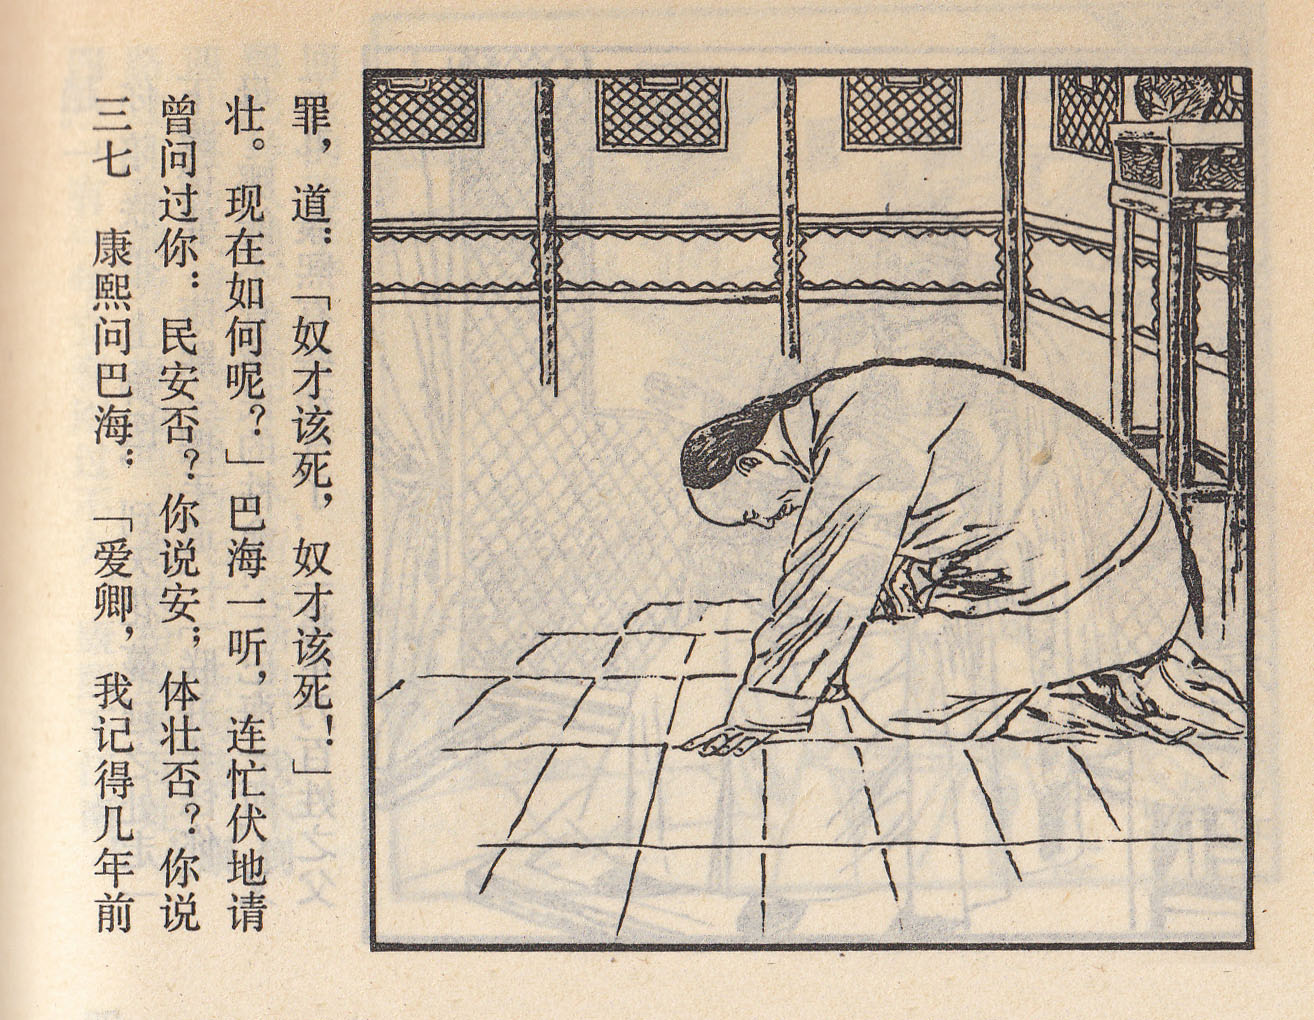 三七　康熙问巴海；「爱卿，我记得几年前
曾问过你：民安否？你说安；体壮否？你说
壮。现在如何呢？」巴海一听，连忙伏地请
罪，道：「奴才该死，奴才该死！」